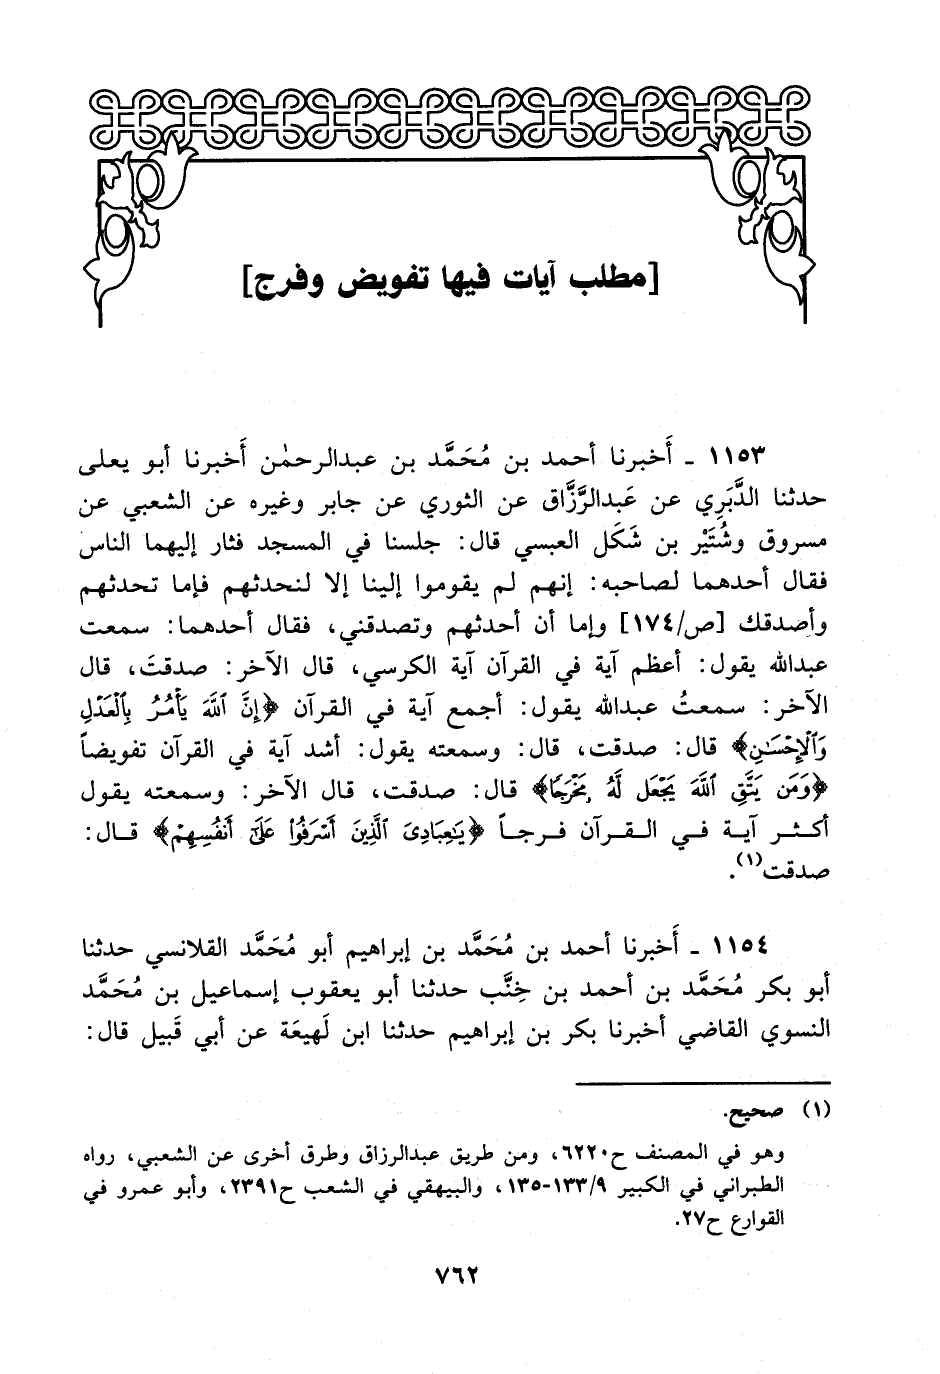 [مطلب آيات فيها تفويض وفرج]
١١٥٣ ـ أَخبرنا أحمد بن مُحَمَّد بن عبدالرحمٰن أَخبرنا أبو يعلى
حدثنا الدَّبَرِي عن عَبدالرَّزَّاق عن الثوري عن جابر وغيره عن الشعبي عن
مسروق وشُتَيْر بن شَكَل العبسي قال: جلسنا في المسجد فثار إليهما الناس
فقال أحدهما لصاحبه: إنهم لم يقوموا إلينا إلا لنحدثهم فإما تحدثهم
وأصدقك [ص/١٧٤] وإما أن أحدثهم وتصدقني، فقال أحدهما: سمعت
عبدالله يقول: أعظم آية في القرآن آية الكرسي، قال الآخر: صدقتَ، قال
الآخر: سمعتُ عبدالله يقول: أجمع آية في القرآن ﴿إِنَّ ٱللَّهَ يَأْمُرُ بِٱلْعَدْلِ
وَٱلْإِحْسَـٰنِ﴾ قال: صدقت، قال: وسمعته يقول: أشد آية في القرآن تفويضاً
﴿وَمَن يَتَّقِ ٱللَّهَ يَجْعَل لَّهُۥ مَخْرَجًا﴾ قال: صدقت، قال الآخر: وسمعته يقول
أكـثـر آيـة فـي الـقـرآن فـرجـاً ﴿يَـٰعِبَادِىَ ٱلَّذِينَ أَسْرَفُوا۟ عَلَىٰٓ أَنفُسِهِمْ﴾ قـال:
صدقت(١).
١١٥٤ ـ أَخبرنا أحمد بن مُحَمَّد بن إبراهيم أبو مُحَمَّد القلانسي حدثنا
أبو بكر مُحَمَّد بن أحمد بن خِنَّب حدثنا أبو يعقوب إسماعيل بن مُحَمَّد
النسوي القاضي أخبرنا بكر بن إبراهيم حدثنا ابن لَهيعَة عن أبي قَبيل قال:
(١) صحيح.
وهو في المصنف ح٦٢٢٠، ومن طريق عبدالرزاق وطرق أخرى عن الشعبي، رواه
الطبراني في الكبير ١٣٣/٩-١٣٥، والبيهقي في الشعب ح٢٣٩١، وأبو عمرو في
القوارع ح٢٧.
٧٦٢